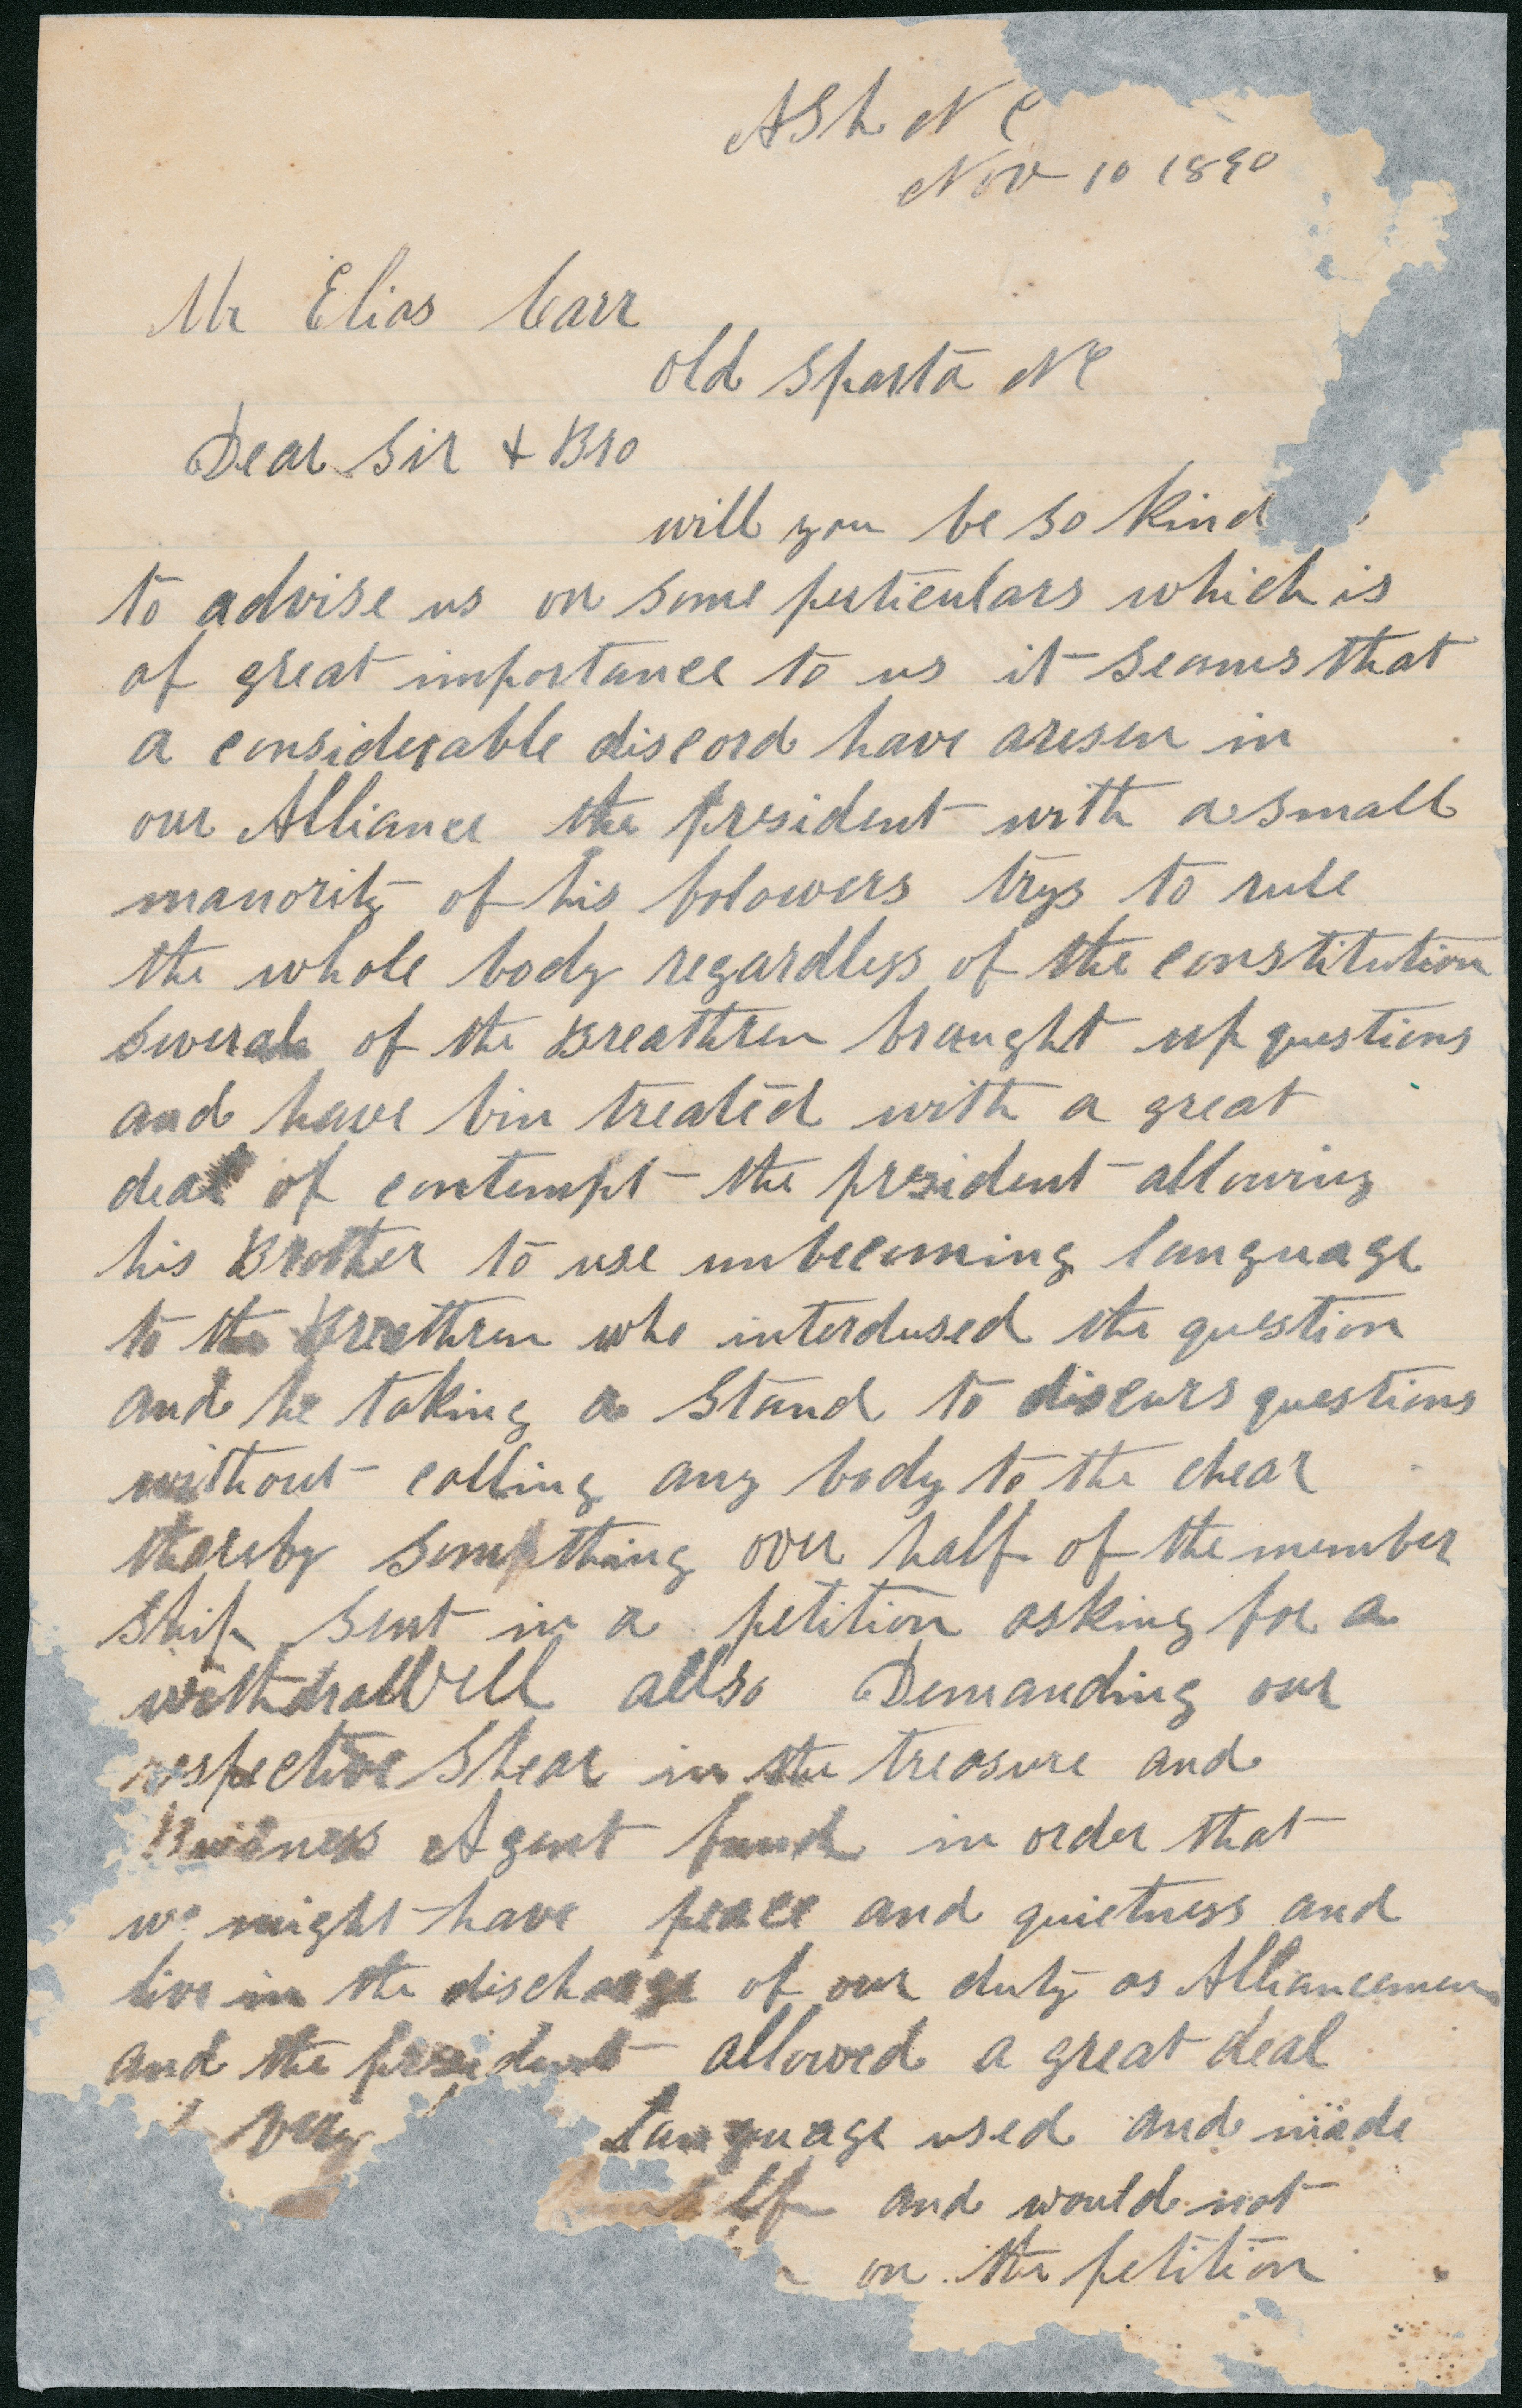 Ash N C
Nov 10 1890
Mr Elias Carr
Old Sparta NC
Dear Sir & Bro
will you be so kind
to advise us on some perticulars which is
of great importance to us it seams that
a considerable discord have aresen in
our Alliance the president with a small
manority of his folowers trys to rule
the whole body regardless of the constitution
several of the Breathren braught up questions
and have bin treated with a great
deal of contempt the president allowing
his Brother to use unbecoming language
to the Breathren who interdused the question
and he taking a stand to discurs questions
without calling any body to the chear
thereby something over half of the member
ship sent in a petition asking for a
withdrallvell allso Demanding our
respective shear in the treasure and
Buisness Agent fund in order that
we might have peace and quietness and
live in the discharge of our duty as Alliancemen
and the president allowed a great deal
very language used and made
and would not
on the petition